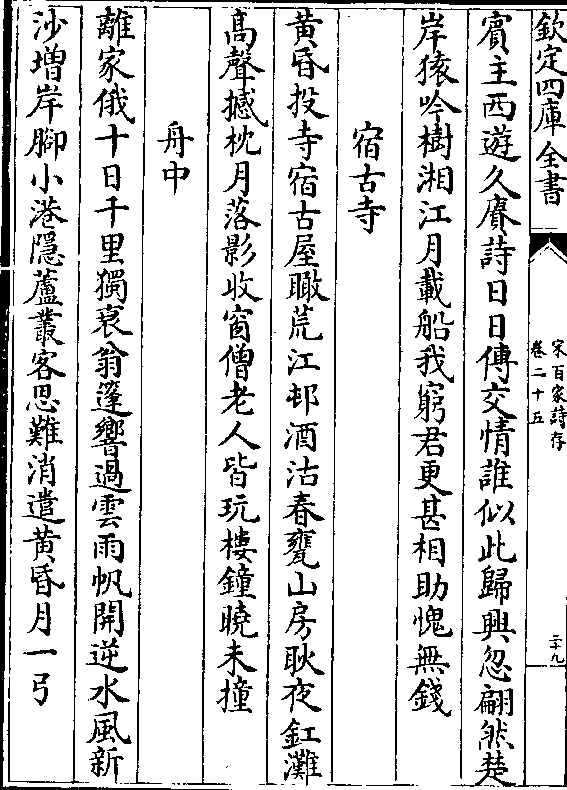 欽定四庫全書
宋百家詩存
卷二十五
二十九
賓主西遊久賡詩日日傳交情誰似此歸興忽翩然楚
岸猿吟樹湘江月載船我窮君更甚相助愧無錢
宿古寺
黄昏投寺宿古屋瞰荒江邨酒沽春甕山房耿夜釭灘
高聲撼枕月落影收窗僧老人皆玩樓鐘曉未撞
舟中
離家俄十日千里獨衰翁篷響過雲雨帆開逆水風新
沙增岸腳小港隱蘆叢客思難消遣黄昏月一弓